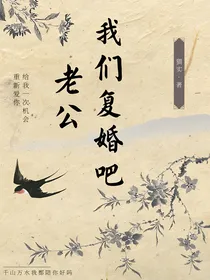 我们复婚吧
老公
给我一次机会
重新爱你
千山万水我都陪你好吗